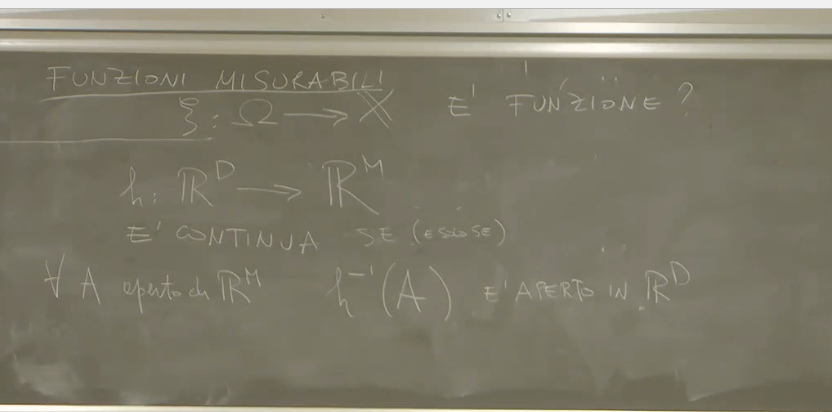 FUNZIONI MISURABILI
ξ: Ω → X E' FUNZIONE?
h: ℝ^D → ℝ^M
E' CONTINUA SE (E SOLO SE)
∀ A aperto di ℝ^M h^-1(A) E' APERTO IN ℝ^D